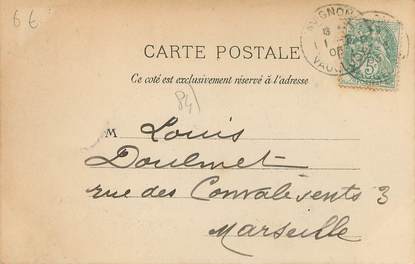 6 €
AVIGNON
CARTE POSTALE
Ce coté est exclusivement réservé à l'adresse
84
M Louis
Doulmet
rue des Convalésents 3
Marseille